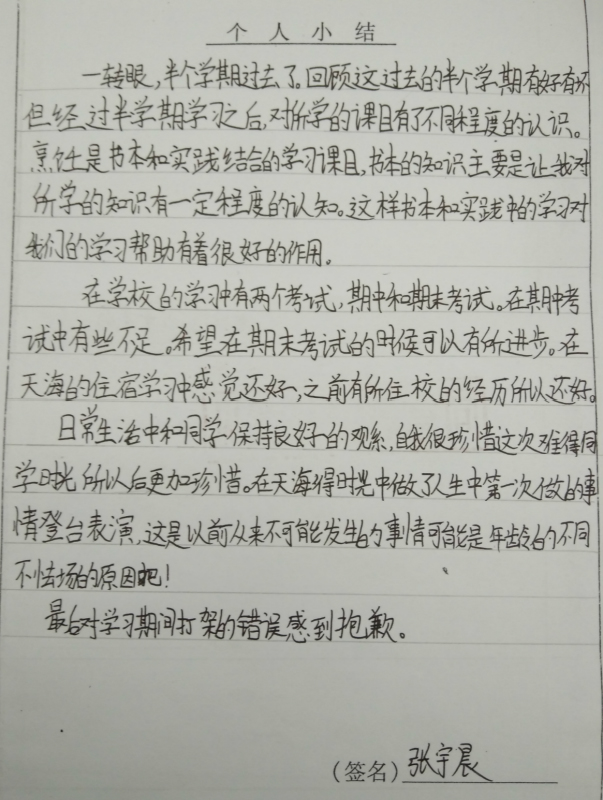 个人小结
一转眼，半个学期过去了。回顾这过去的半个学期有好有坏
但经过半学期学习之后，对所学的课目有了不同程度的认识。
烹饪是书本和实践结合的学习课目，书本的知识主要是让我对
所学的知识有一定程度的认知。这样书本和实践中的学习对
我们的学习帮助有着很好的作用。
在学校的学习中有两个考试，期中和期末考试。在期中考
试中有些不足。希望在期末考试的时候可以有所进步。在
天海的住宿学习中感觉还好，之前有所住校的经历所以还好。
日常生活中和同学保持良好的观系，自我很珍惜这次难得同
学时光所以后更加珍惜。在天海得时光中做了人生中第一次做的事
情登台表演，这是以前从来不可能发生的事情可能是年龄的不同
不怯场的原因吧！
最后对学习期间打架的错误感到抱歉。
(签名)张宇晨